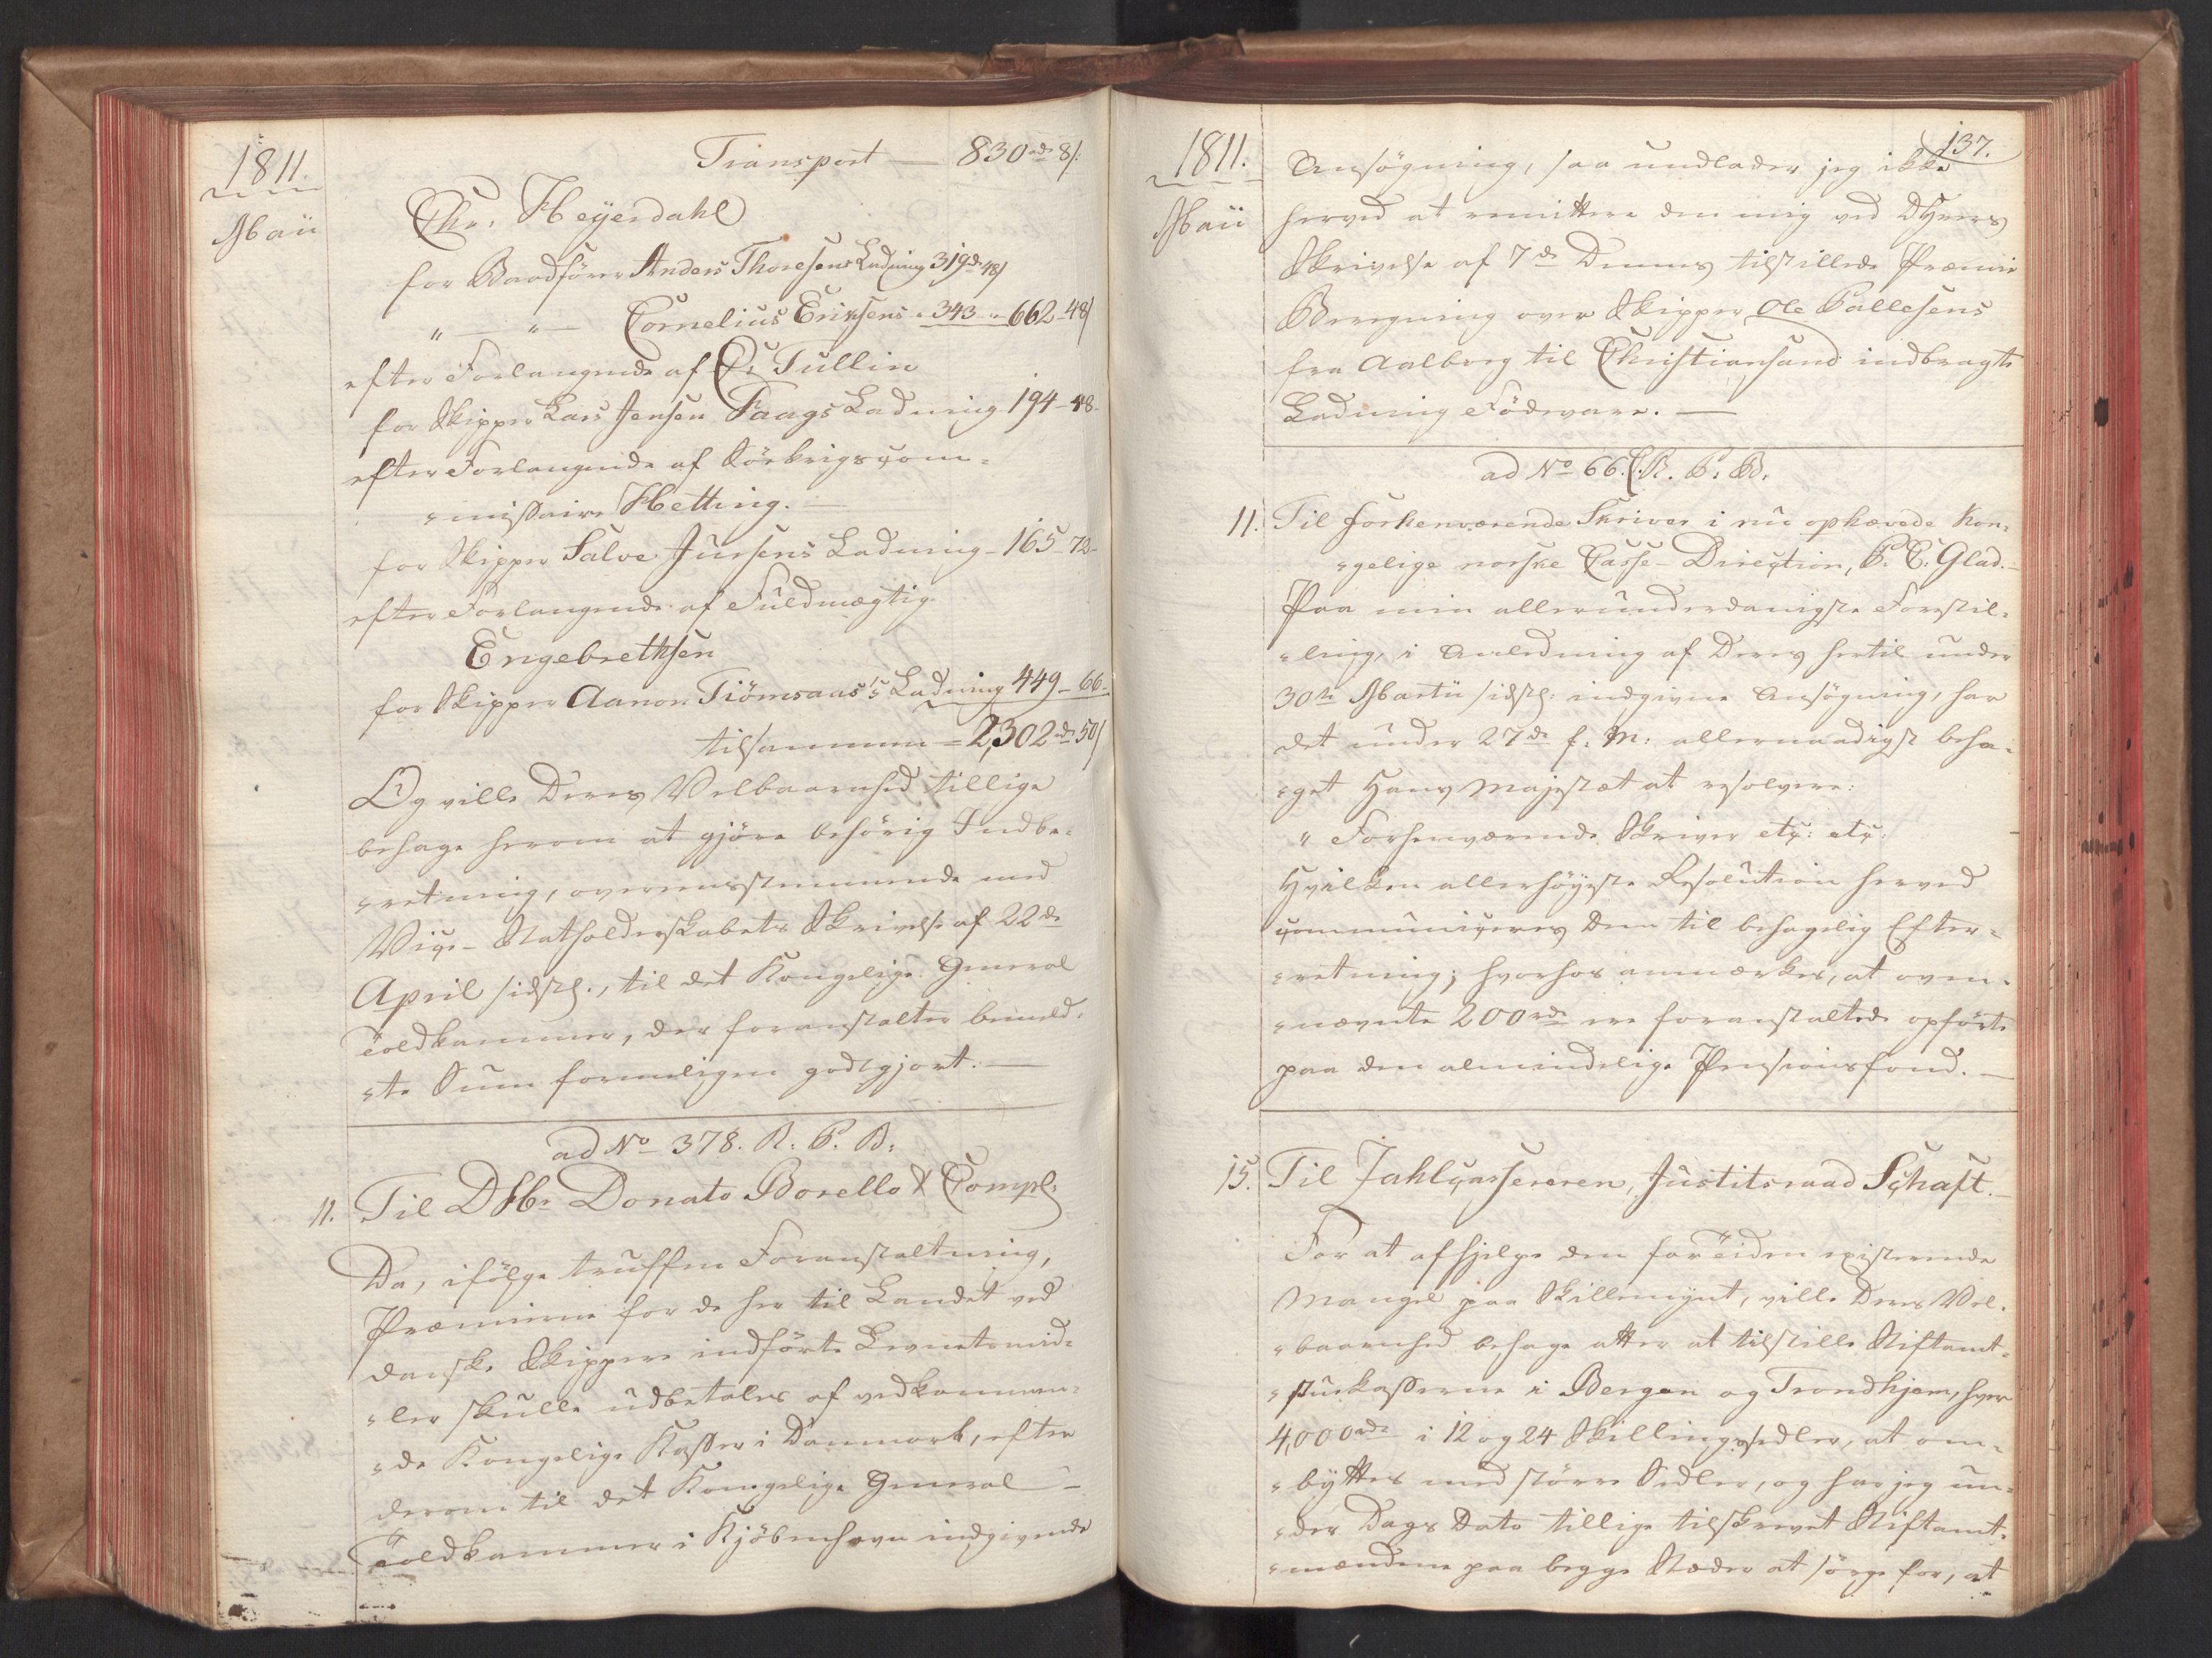 1811.
Maii
Transport — 830 rdr 8/:
Chr. Heyerdahl
for Baadfører Anders Thoresens Ladning 319 dr 48/
" — " — Cornelius Eriksens " 343 - " 662 - 48/
efter Forlangende af C: Tullin
for Skipper Lars Jensen Faags Ladning 194 - 48 -
efter Forlangende af Søekrigscom-
missaire Hetting. —
for Skipper Salve Jursens Ladning - 165 - 72 -
efter Forlangende af Fuldmægtig
Engebrethsen
for Skipper Aanon Tiömsaas's Ladning 449 - 66 -
tilsammen = 2,302 rdr 50/
Og ville Deres Velbaarenhed tillige
behage herom at gjöre behörig Indbe-
retning, overensstemmende med
Vice-Statholderskabets Skrivelse af 22de
April sidstl., til det Kongelige General
Toldkammer, der foranstalter bemeld-
te Sum formeligen godtgjort. —
ad No 378. R. P. B.
11. Til DHr. Donato Borello & Compl:
Da, ifölge truffen Foranstaltning,
Præmierne for de her til Landet ved
danske Skippere indförte Levnetsmid-
ler skulle udbetales af vedkommen-
de Kongelige Kasser i Danmark, efter
derom til det Kongelige General-
Toldkammer i Kjöbenhavn indgivende
137.
1811.
Maii
Ansögning, saa undlader jeg ikke
herved at remittere den mig ved DHrrs
Skrivelse af 7de Dennes tilstillede Præmie
Beregning over Skipper Ole Pallesens
fra Aalborg til Christiansand indbragte
Ladning Födevare. —
ad No 66. C. R. P. B.
11. Til forhenværende Skriver i nu ophævede Kon-
gelige norske Casse-Direction, P. C. Glad. —
Paa min allerunderdanigste Forestil-
ling, i Anledning af Deres hertil under
30te Martii sidstl: indgivne Ansögning, har
det under 27de f. M: allernaadigst beha-
get Hans Majestæt at resolvere:
" Forhenværende Skriver etc: etc:
Hvilken allerhöyeste Resolution herved
communiceres Dem til behagelig Efter-
retning; hvorhos anmærkes, at oven-
nævnte 200 rdr ere foranstaltede opförte
paa den almindelige Pensionsfond. —
15. Til Zahlcasserern, Justitsraad Schaft. —
For at afhjelpe den for Tiden existerende
Mangel paa Skillemynt, ville Deres Vel-
baarenhed behage atter at tilstille Stiftamt-
stuekasserne i Bergen og Trondhjem, hver
4,000 rdr i 12 og 24 Skillingssedler, at om-
byttes med större Sedler, og har jeg un-
der Dags Dato tillige tilskrevet Stiftamt-
mændene paa begge Stæder at sörge for, at